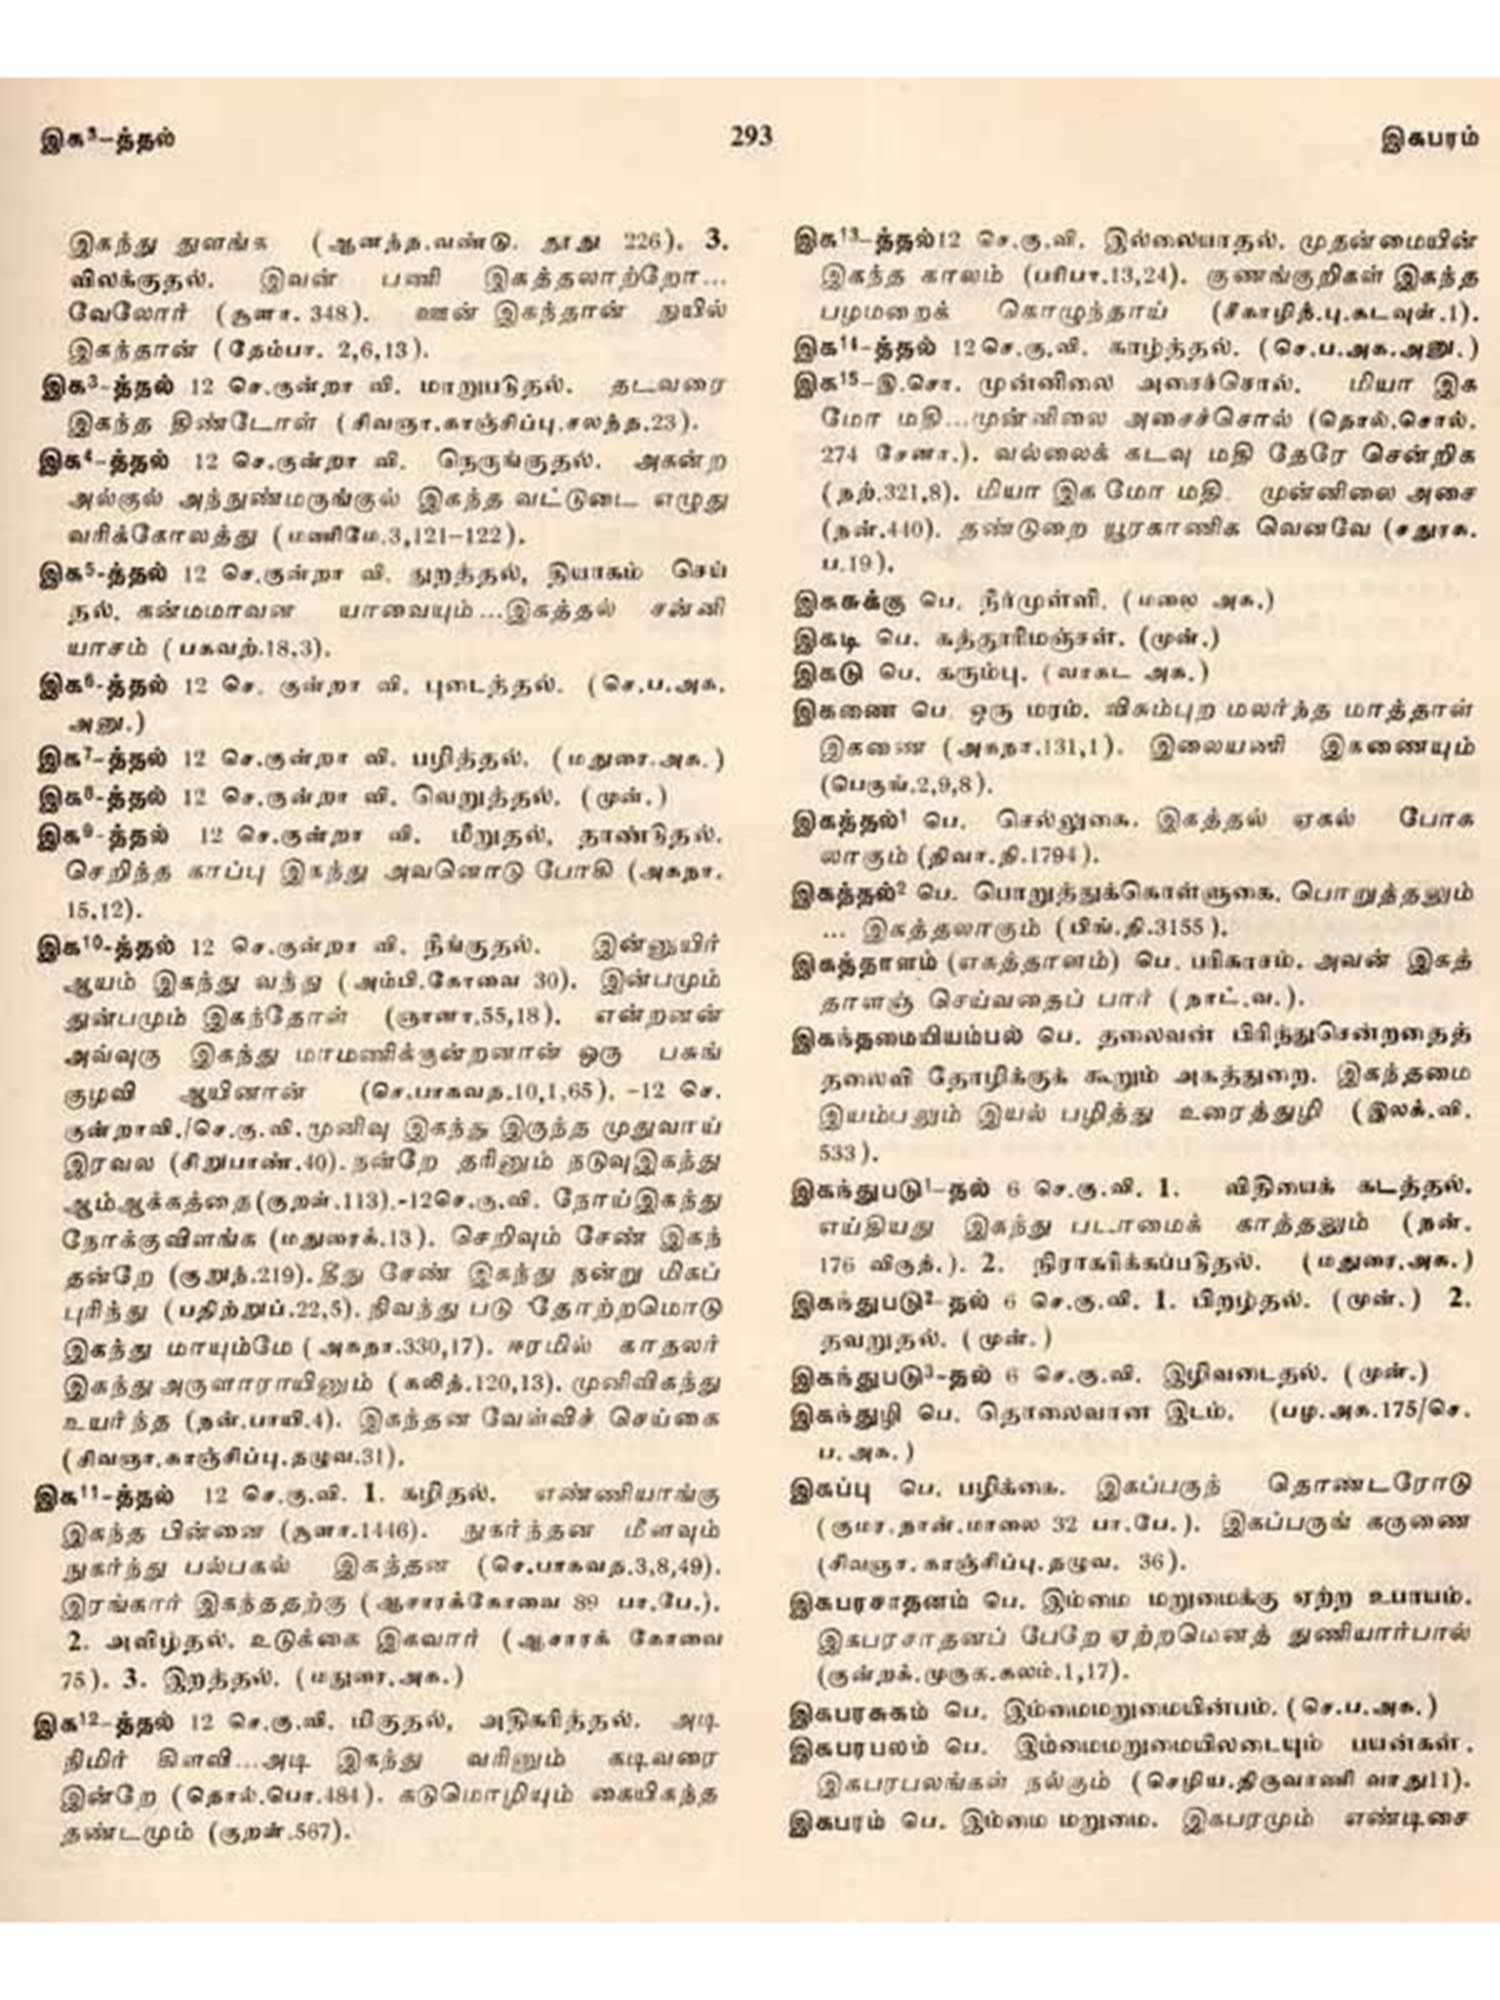 இக³-த்தல்
293
இகபரம்
இகந்து துளங்க (ஆனந்த.வண்டு. தூது 226). 3.
விலக்குதல். இவன் பணி இகத்தலாற்றோ...
வேலோர் (சூளா. 348). ஊன் இகந்தான் துயில்
இகந்தான் (தேம்பா. 2,6,13).
இக³-த்தல் 12 செ.குன்றா வி. மாறுபடுதல். தடவரை
இகந்த திண்டோள் (சிவஞா.காஞ்சிப்பு.சலந்த.23).
இக⁴-த்தல் 12 செ.குன்றா வி. நெருங்குதல். அகன்ற
அல்குல் அந்நுண்மருங்குல் இகந்த வட்டுடை எழுது
வரிக்கோலத்து (மணிமே.3,121-122).
இக⁵-த்தல் 12 செ.குன்றா வி. துறத்தல், தியாகம் செய்
தல். கன்மமாவன யாவையும்...இகத்தல் சன்னி
யாசம் (பகவற்.18,3).
இக⁶-த்தல் 12 செ. குன்றா வி. புடைத்தல். (செ.ப.அக.
அனு.)
இக⁷-த்தல் 12 செ.குன்றா வி. பழித்தல். (மதுரை.அக.)
இக⁸-த்தல் 12 செ.குன்றா வி. வெறுத்தல். (முன்.)
இக⁹-த்தல் 12 செ.குன்றா வி. மீறுதல், தாண்டுதல்.
செறிந்த காப்பு இகந்து அவனொடு போகி (அகநா.
15,12).
இக¹⁰-த்தல் 12 செ.குன்றா வி. நீங்குதல். இன்னுயிர்
ஆயம் இகந்து வந்து (அம்பி.கோவை 30). இன்பமும்
துன்பமும் இகந்தோள் (ஞானா.55,18). என்றனன்
அவ்வுரு இகந்து மாமணிக்குன்றனான் ஒரு பசுங்
குழவி ஆயினான் (செ.பாகவத.10,1,65). -12 செ.
குன்றாவி./செ.கு.வி.முனிவு இகந்து இருந்த முதுவாய்
இரவல (சிறுபாண்.40).நன்றே தரினும் நடுவுஇகந்து
ஆம்ஆக்கத்தை(குறள்.113).-12செ.கு.வி. நோய்இகந்து
நோக்குவிளங்க (மதுரைக்.13). செறிவும் சேண் இகந்
தன்றே (குறுந்.219).தீது சேண் இகந்து நன்று மிகப்
புரிந்து (பதிற்றுப்.22,5).நிவந்து படு தோற்றமொடு
இகந்து மாயும்மே (அகநா.330,17). ஈரமில் காதலர்
இகந்துஅருளாராயினும் (கலித்.120,13).முனிவிகந்து
உயர்ந்த (நன்.பாயி.4). இகந்தன வேள்விச் செய்கை
(சிவஞா.காஞ்சிப்பு.தழுவ.31).
இக¹¹-த்தல் 12 செ.கு.வி. 1. கழிதல். எண்ணியாங்கு
இகந்த பின்னை (சூளா.1446). நுகர்ந்தன மீளவும்
நுகர்ந்து பல்பகல் இகந்தன (செ.பாகவத.3,8,49).
இரங்கார் இகந்ததற்கு (ஆசாரக்கோவை 89 பா.பே.).
2. அவிழ்தல். உடுக்கை இகவார் (ஆசாரக் கோவை
75). 3. இறத்தல். (மதுரை.அக.)
இக¹²-த்தல் 12 செ.கு.வி. மிகுதல், அதிகரித்தல். அடி
நிமிர் கிளவி...அடி இகந்து வரினும் கடிவரை
இன்றே (தொல்.பொ.484). கடுமொழியும் கையிகந்த
தண்டமும் (குறள்.567).
இக¹³-த்தல்12 செ.கு.வி. இல்லையாதல். முதன்மையின்
இகந்த காலம் (பரிபா.13,24). குணங்குறிகள் இகந்த
பழமறைக் கொழுந்தாய் (சீகாழித்.பு.கடவுள்.1).
இக¹⁴-த்தல் 12செ.கு.வி. காழ்த்தல். (செ.ப.அக.அனு.)
இக¹⁵-இ.சொ. முன்னிலை அசைச்சொல். மியா இக
மோ மதி...முன்னிலை அசைச்சொல் (தொல்.சொல்.
274 சேனா.). வல்லைக் கடவு மதி தேரே சென்றிக
(நற்.321,8). மியா இக மோ மதி முன்னிலை அசை
(நன்.440). தண்டுறை யூரகாணிக வெனவே (சதுரக.
ப.19).
இககக்கு பெ. நீர்முள்ளி. (மலை அக.)
இகடி பெ. கத்தூரிமஞ்சள். (முன்.)
இகடு பெ. கரும்பு. (வாகட அக.)
இகணை பெ. ஒரு மரம். விசும்புற மலர்ந்த மாத்தாள்
இகணை (அகநா.131,1). இலையணி இகணையும்
(பெருங்.2,9,8).
இகத்தல்¹ பெ. செல்லுகை. இகத்தல் ஏகல் போக
லாகும் (திவா.நி.1794).
இகத்தல்² பெ. பொறுத்துக்கொள்ளுகை. பொறுத்தலும்
... இகத்தலாகும் (பிங்.நி.3155).
இகத்தாளம் (எகத்தாளம்) பெ. பரிகாசம். அவன் இகத்
தாளஞ் செய்வதைப் பார் (நாட்.வ.).
இகந்தமையியம்பல் பெ. தலைவன் பிரிந்துசென்றதைத்
தலைவி தோழிக்குக் கூறும் அகத்துறை. இகந்தமை
இயம்பலும் இயல் பழித்து உரைத்துழி (இலக்.வி.
533).
இகந்துபடு¹-தல் 6 செ.கு.வி. 1. விதியைக் கடத்தல்.
எய்தியது இகந்து படாமைக் காத்தலும் (நன்.
176 விருத்.). 2. நிராகரிக்கப்படுதல். (மதுரை.அக.)
இகந்துபடு²-தல் 6 செ.கு.வி. 1. பிறழ்தல். (முன்.) 2.
தவறுதல். (முன்.)
இகந்துபடு³-தல் 6 செ.கு.வி. இழிவடைதல். (முன்.)
இகந்துழி பெ. தொலைவான இடம். (பழ.அக.175/செ.
ப. அக.)
இகப்பு பெ. பழிக்கை. இகப்பகுந் தொண்டரோடு
(குமர.நான்.மாலை 32 பா.பே.). இகப்பருங் கருணை
(சிவஞா.காஞ்சிப்பு.தழுவ. 36).
இகபரசாதனம் பெ. இம்மை மறுமைக்கு ஏற்ற உபாயம்.
இகபரசாதனப் பேறே ஏற்றமெனத் துணியார்பால்
(குன்றக்.முருக.கலம்.1,17).
இகபரசுகம் பெ. இம்மைமறுமையின்பம். (செ.ப.அக.)
இகபரபலம் பெ. இம்மைமறுமையிலடையும் பயன்கள்.
இகபரபலங்கள் நல்கும் (செழிய.திருவாணி வாது11).
இகபரம் பெ. இம்மை மறுமை. இகபரமும் எண்டிசை